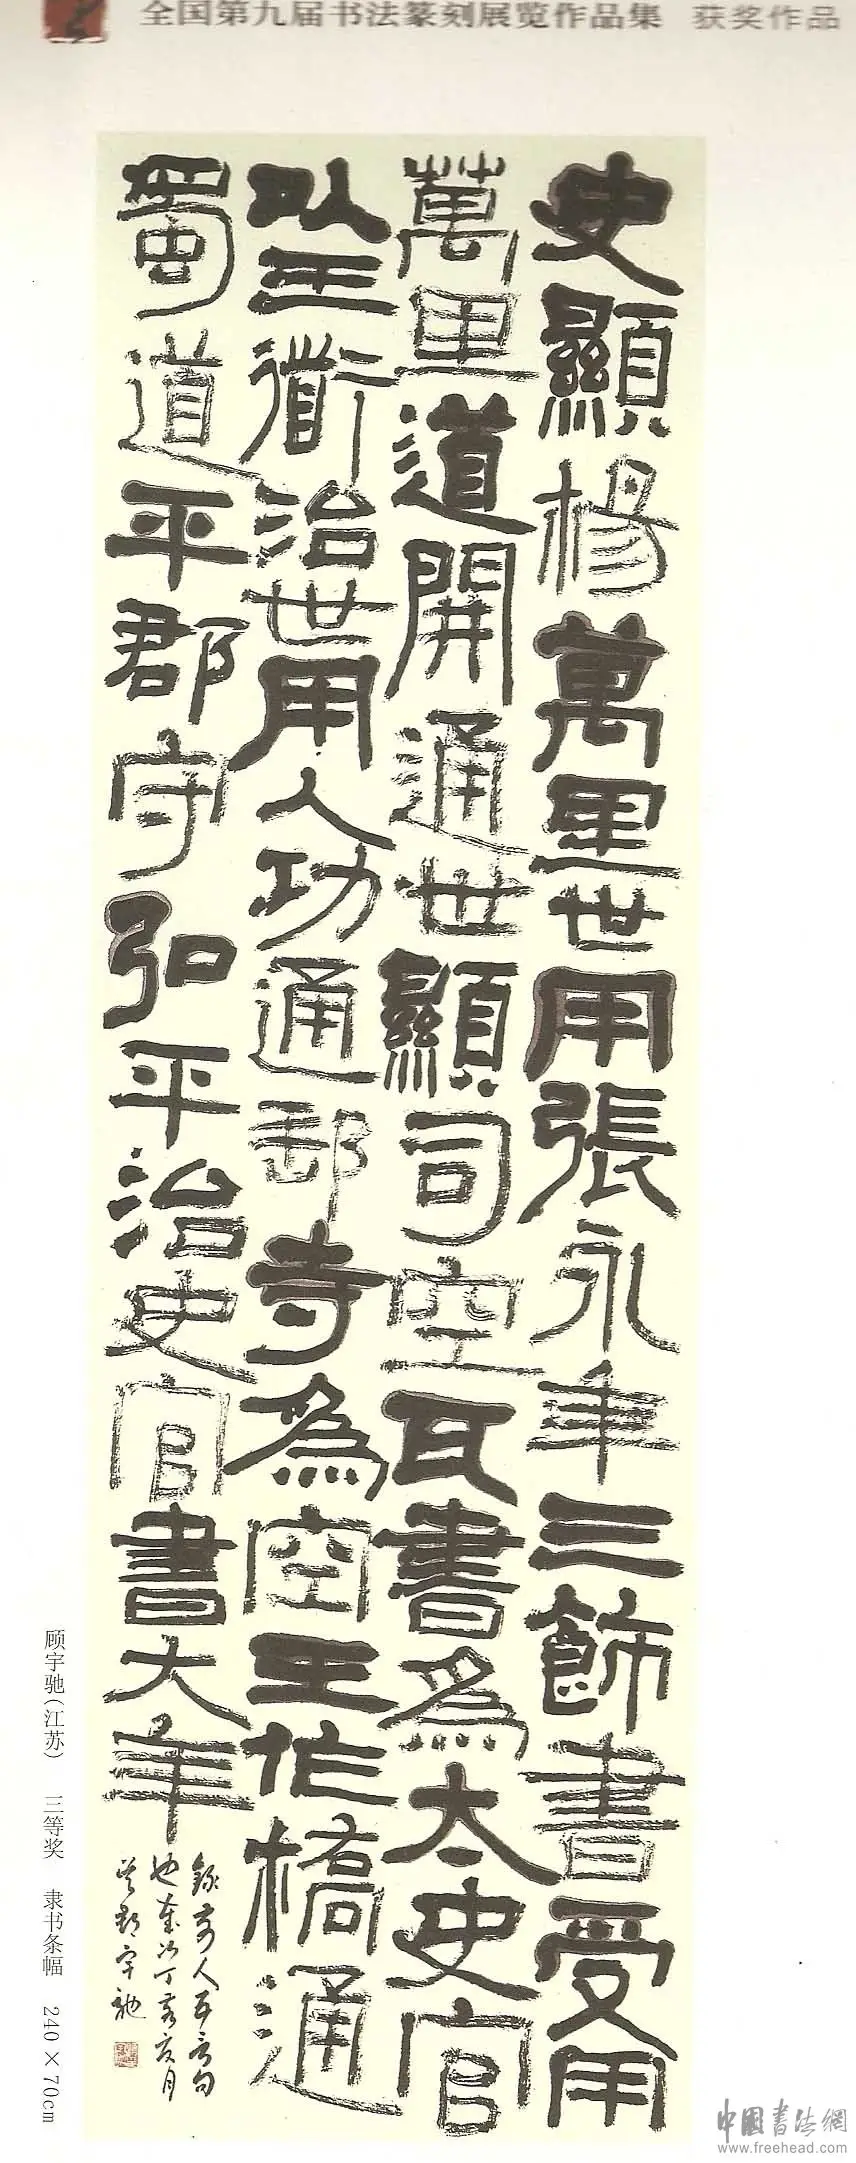 全国第九届书法篆刻展览作品集 获奖作品
史顯楊萬里世用張永年三飾書受用
萬里道開通世顯司空瓦書為太史官
以王衜治世用人功通郵寺為空王作橋通
蜀道平郡守弘平治史官書大年
錄前人五言句
也歲次丁亥夏月
吳郡宇馳
顾宇驰(江苏) 三等奖 隶书条幅 240×70cm
中國書法網
www.freehead.com